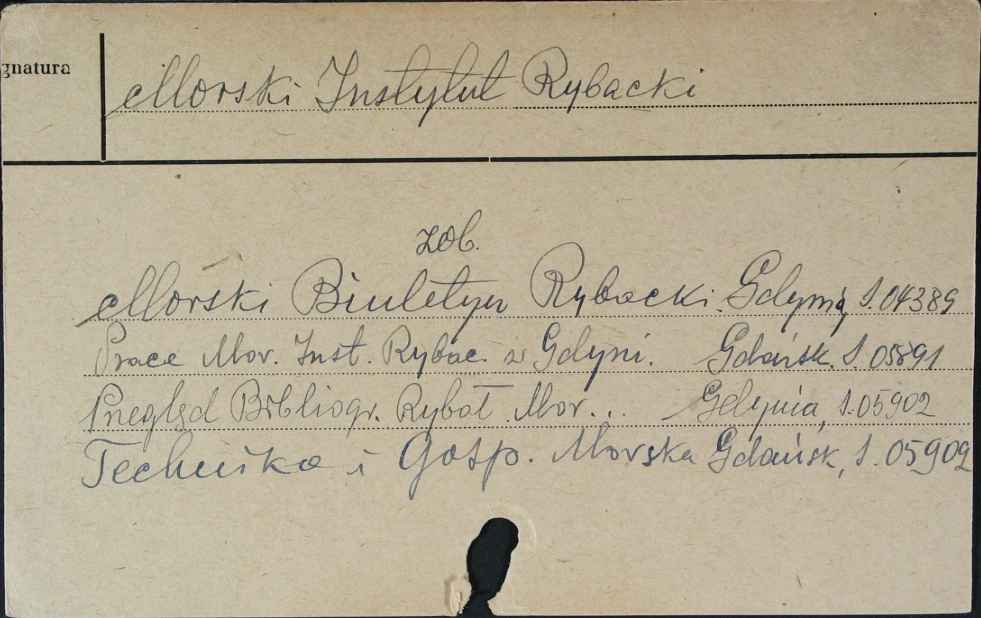 gnatura
Morski Instytut Rybacki
zob.
Morski Biuletyn Rybacki. Gdynia, S.04389
Prace Mor. Inst. Rybac. w Gdyni. Gdańsk. S.05891
Przegląd Bibliogr. Rybał. Mor... Gdynia, S.05902
Technika i Gosp. Morska Gdańsk, S.05909